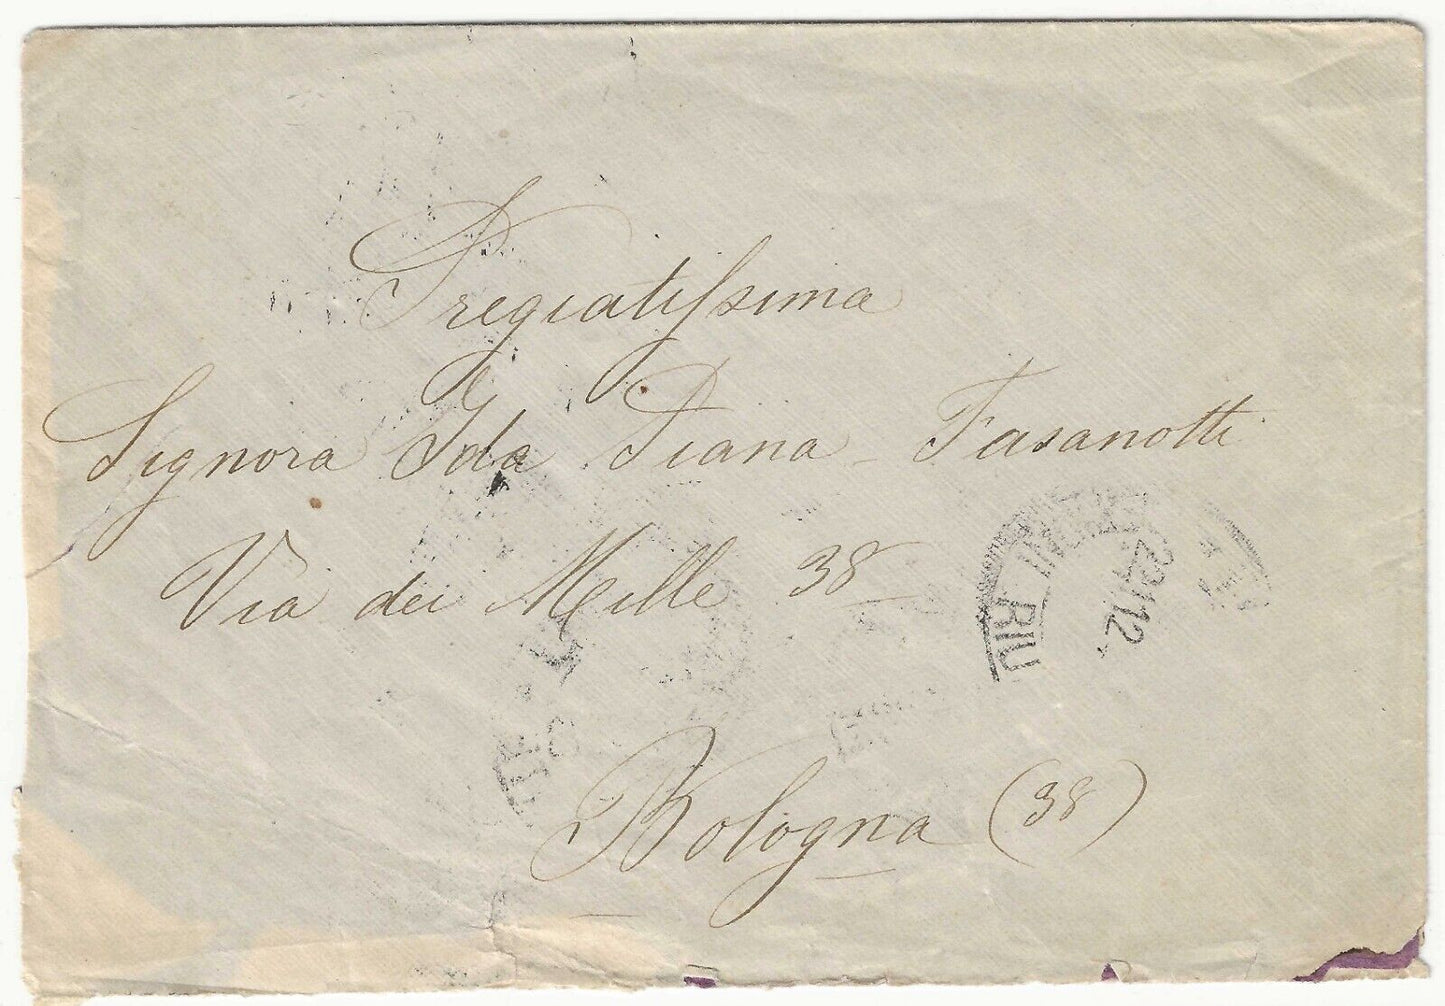 Pregiatissima
Signora Ida Diana - Fasanotti
Via dei Mille 38
Bologna (38)
RIU